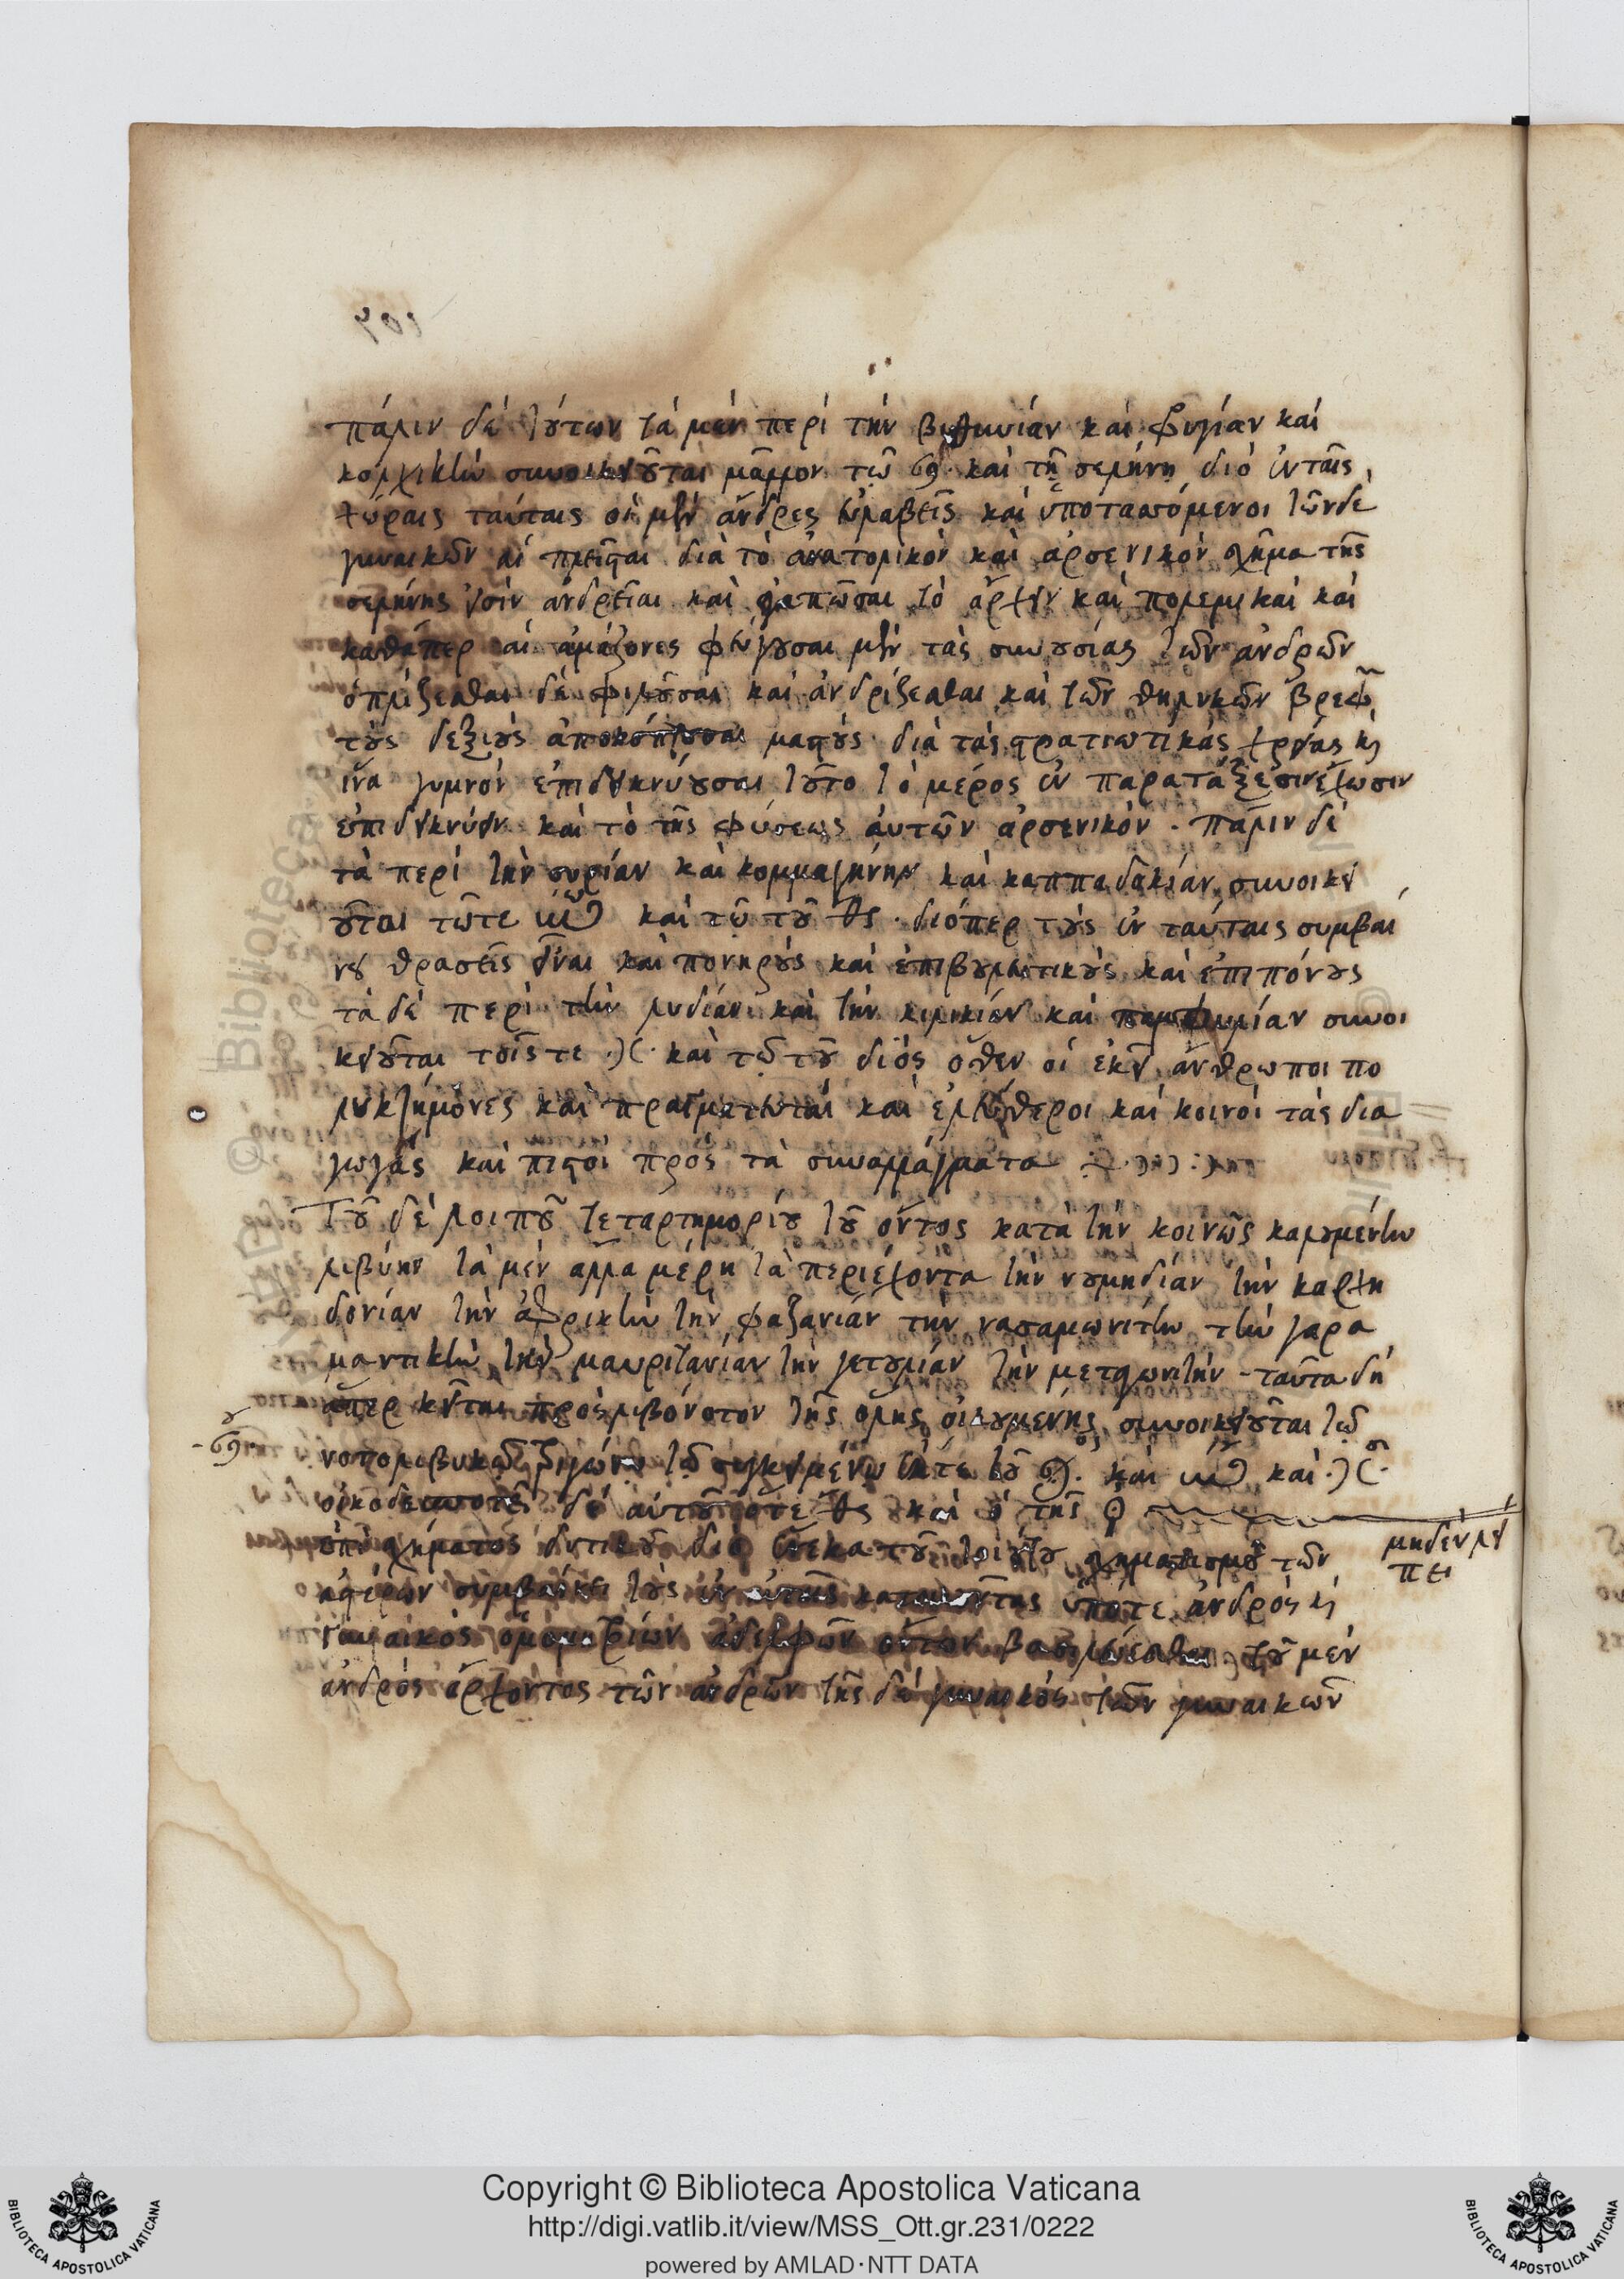 πάλιν δὲ τούτων τὰ μὲν περὶ τὴν βιθυνίαν καὶ φρυγίαν καὶ
κολχικὴν συνοικειοῦται μᾶλλον τῷ ♋ καὶ τῇ σελήνῃ διὸ ἐν ταῖς
χώραις ταύταις οἱ μὲν ἄνδρες εὐλαβεῖς καὶ ὑποτασσόμενοι τῶν δὲ
γυναικῶν αἱ πλεῖσται διὰ τὸ ἀνατολικὸν καὶ ἀρσενικὸν σχῆμα τῆς
σελήνης εἰσὶν ἀνδρεῖαι καὶ ἀγαπῶσαι τὸ ἄρχειν καὶ πολεμικαὶ καὶ
καθάπερ αἱ ἀμάζονες φεύγουσαι μὲν τὰς συνουσίας τῶν ἀνδρῶν
ὁπλίζεσθαι δὲ φιλοῦσαι καὶ ἀνδρίζεσθαι καὶ τῶν θηλυκῶν βρεφῶν
τοὺς δεξιοὺς ἀποκόπτουσαι μαστοὺς διὰ τὰς στρατιωτικὰς χρείας καὶ
ἵνα γυμνὸν ἐπιδεικνύουσαι τοῦτο τὸ μέρος ἐν παρατάξεσιν ἔχωσιν
ἐπιδεικνύειν καὶ τὸ τῆς φύσεως αὐτῶν ἀρσενικόν. πάλιν δὲ
τὰ περὶ τὴν συρίαν καὶ κομμαγηνὴν καὶ καππαδοκίαν συνοικει
οῦται τῷ τε ♏ καὶ τῷ τοῦ ἄρεος. διόπερ τοὺς ἐν ταύταις συμβαί
νει θρασεῖς εἶναι καὶ πονηροὺς καὶ ἐπιβουλευτικοὺς καὶ ἐπιπόνους
τὰ δὲ περὶ τὴν λυδίαν καὶ τὴν κιλικίαν καὶ παμφυλίαν συνοι
κειοῦται τοῖς τε ♓ καὶ τῷ τοῦ διός ὅθεν οἱ ἐκεῖ ἄνθρωποι πο
λυκτήμονες καὶ πραγματευταὶ καὶ ἐλεύθεροι καὶ κοινοὶ τὰς δια
γωγὰς καὶ πιστοὶ πρὸς τὰ συναλλάγματα
Τοῦ δὲ λοιποῦ τεταρτημορίου τοῦ ὄντος κατὰ τὴν κοινῶς καλουμένην
λιβύην τὰ μὲν ἄλλα μέρη τὰ περιέχοντα τὴν νουμηδίαν τὴν καρχη
δονίαν τὴν ἀφρικὴν τὴν φαζανίαν τὴν νασαμωνίτην τὴν γαρα
μαντικὴν τὴν μαυριτανίαν τὴν γετουλίαν τὴν μεταγωνίτην ταῦτα δὴ
ἅπερ κεῖται πρὸς λιβόνοτον τῆς ὅλης οἰκουμένης συνοικειοῦται τῷ
νοτολιβυκῷ τριγώνῳ τῷ συγκειμένῳ ἔκ τε τοῦ ♋ καὶ ♏ καὶ ♓
οἰκοδεσποτεῖ δὲ αὐτοῦ ὅ τε ἄρεος καὶ ὁ τῆς ♀
ἐπὶ σχήματος δυτικοῦ διὸ ἕνεκα τοῦ τοιούτου σχηματισμοῦ τῶν
ἀστέρων συμβαίνει τοὺς ἐν αὐταῖς κατοικοῦντας ὑπό τε ἀνδρὸς καὶ
γυναικὸς ὁμομητρίων ἀδελφῶν ὄντων βασιλεύεσθαι τοῦ μὲν
ἀνδρὸς ἄρχοντος τῶν ἀνδρῶν τῆς δὲ γυναικὸς τῶν γυναικῶν
μηδὲν λεί
πει
Copyright © Biblioteca Apostolica Vaticana
http://digi.vatlib.it/view/MSS_Ott.gr.231/0222
powered by AMLAD·NTT DATA
BIBLIOTECA APOSTOLICA VATICANA
BIBLIOTECA APOSTOLICA VATICANA